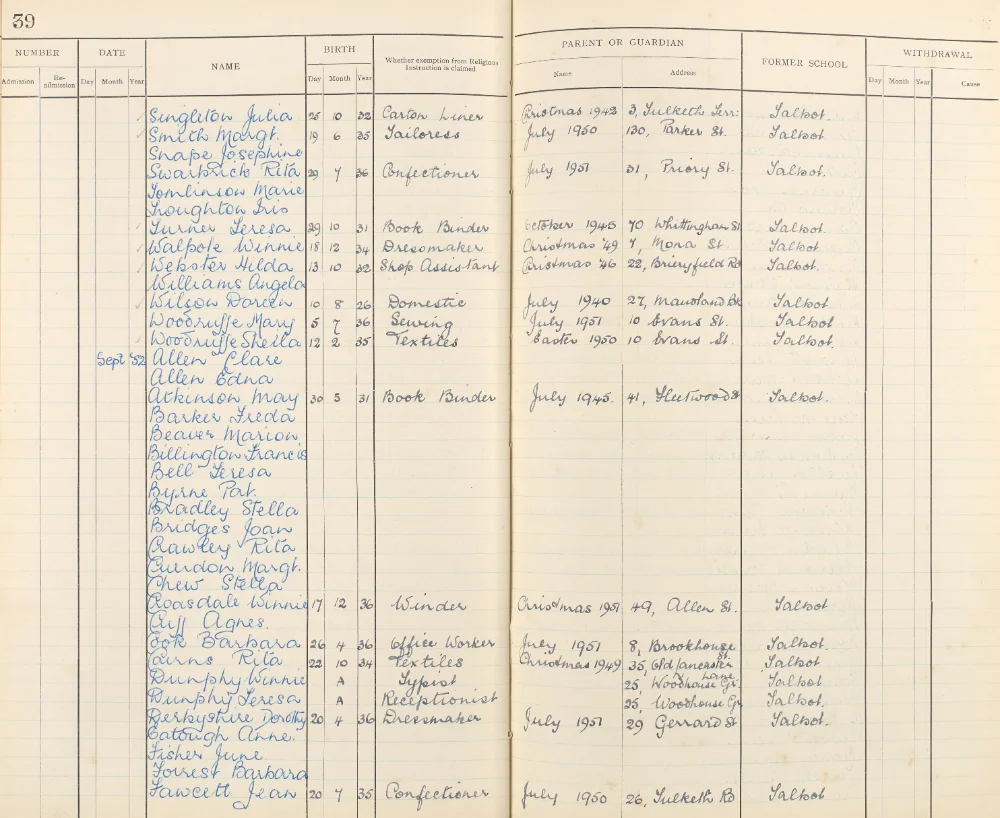 39
NUMBER DATE NAME BIRTH Whether exemption from Religious Instruction is claimed PARENT OR GUARDIAN FORMER SCHOOL WITHDRAWAL
Admission Re-admission Day Month Year Day Month Year Name Address Day Month Year Cause
Singleton Julia 25 10 32 Carton Liner Christmas 1942 3, Tulketh Terr: Talbot.
Smith Margt. 19 6 35 Tailoress July 1950 130, Parker St. Talbot
Snape Josephine
Swarbrick Rita 29 7 36 Confectioner July 1951 31, Priory St. Talbot.
Tomlinson Marie
Troughton Iris
Turner Teresa 29 10 31 Book Binder October 1945 70 Whittingham St Talbot.
Walpole Winnie 18 12 34 Dressmaker Christmas '49 7, Mona St Talbot
Webster Hilda 13 10 32 Shop Assistant Christmas '46 22, Brieryfield Rd Talbot.
Williams Angela
Wilson Doreen 10 8 26 Domestic July 1940 27, Maudland Bk Talbot
Woodruffe Mary 5 7 36 Sewing July 1951 10 Evans St. Talbot
Woodruffe Sheila 12 2 35 Textiles Easter 1950 10 Evans St. Talbot.
Sept '52 Allen Clare
Allen Edna
Atkinson May 30 5 31 Book Binder July 1945. 41, Fleetwood St Talbot.
Barker Freda
Beaver Marion
Billington Francis
Bell Teresa
Byrne Pat.
Bradley Stella
Bridges Joan
Crawley Rita
Cuerdon Margt.
Chew Stella
Croasdale Winnie 17 12 36 Winder Christmas 1951 49, Allen St. Talbot
Cuff Agnes.
Cook Barbara 26 4 36 Office Worker July 1951 8, Brookhouse St. Talbot.
Cairns Rita 22 10 34 Textiles Christmas 1949 35, Old Lancaster Lane. Talbot
Dunphy Winnie A Typist 25, Woodhouse Gr. Talbot
Dunphy Teresa A Receptionist 25, Woodhouse Gr Talbot.
Derbyshire Dorothy 20 4 36 Dressmaker July 1951 29 Gerrard St Talbot.
Eatough Anne.
Fisher June
Forrest Barbara
Fawcett Jean 20 7 35 Confectioner July 1950 26, Tulketh Rd Talbot